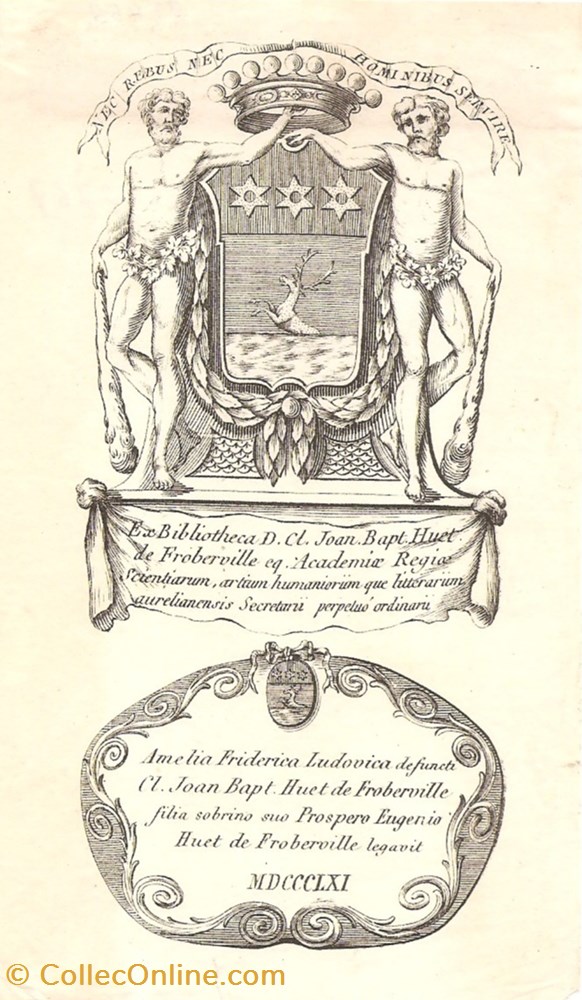 NEC REBUS NEC HOMINIBUS SERVIRE
Ex Bibliotheca D. Cl. Joan. Bapt. Huet
de Froberville eq. Academiæ Regiæ
Scientiarum, artium humaniorum que litterarum
aurelianensis Secretarii perpetuo ordinarii
Amelia Friderica Ludovica defuncti
Cl. Joan Bapt. Huet de Froberville
filia sobrino suo Prospero Eugenio
Huet de Froberville legavit
MDCCCLXI
© CollecOnline.com